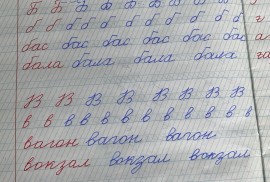 Б Б Б Б Б Б Б Б Б
б б б б б б б б б б б
бас бас бас бас бас
бала бала бала бала
В В В В В В В В
в в в в в в в в в в в в
вагон вагон вагон
вокзал вокзал вокзал